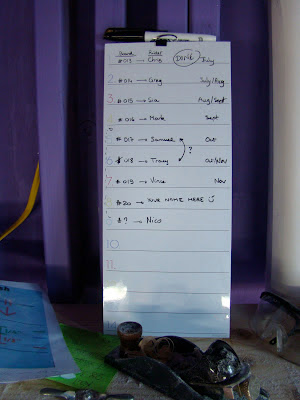 Board Rider
1 #013 → Chris DONE July
2 #014 → Greg July/Aug
3 #015 → Sia Aug/Sept
4 #016 → Mark Sept
5 #017 → Samuel Oct
?
6 #018 → Tracy Oct/Nov
7 #019 → Vince Nov
8 #20 → YOUR NAME HERE ☺
9 #? → Nico
10
11